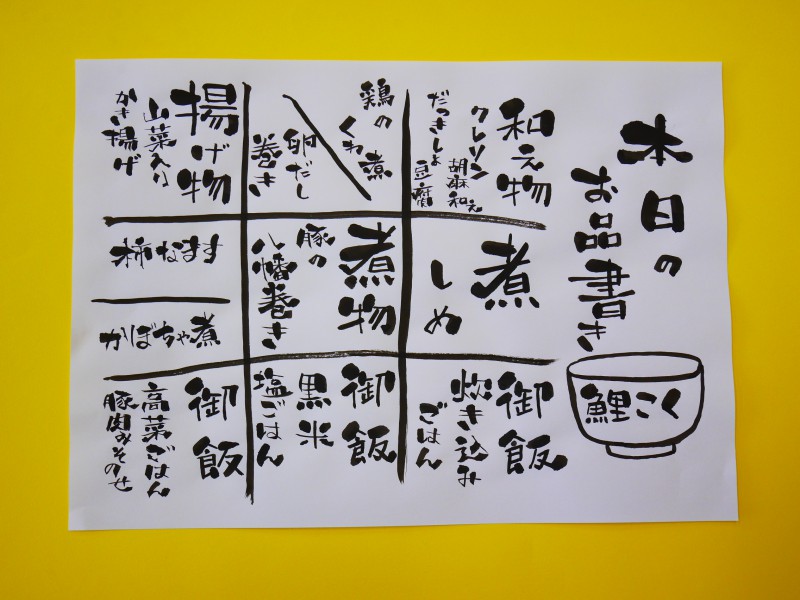 本日の
お品書き
鯉こく
和え物
クレソン
胡麻和え
だっきしょ
豆腐
鶏の
くわ煮
卵だし
巻き
揚げ物
山菜入り
かき揚げ
煮
しめ
煮物
豚の
八幡巻き
柿なます
かぼちゃ煮
御飯
炊き込み
ごはん
御飯
黒米
塩ごはん
御飯
高菜ごはん
豚肉みそのせ